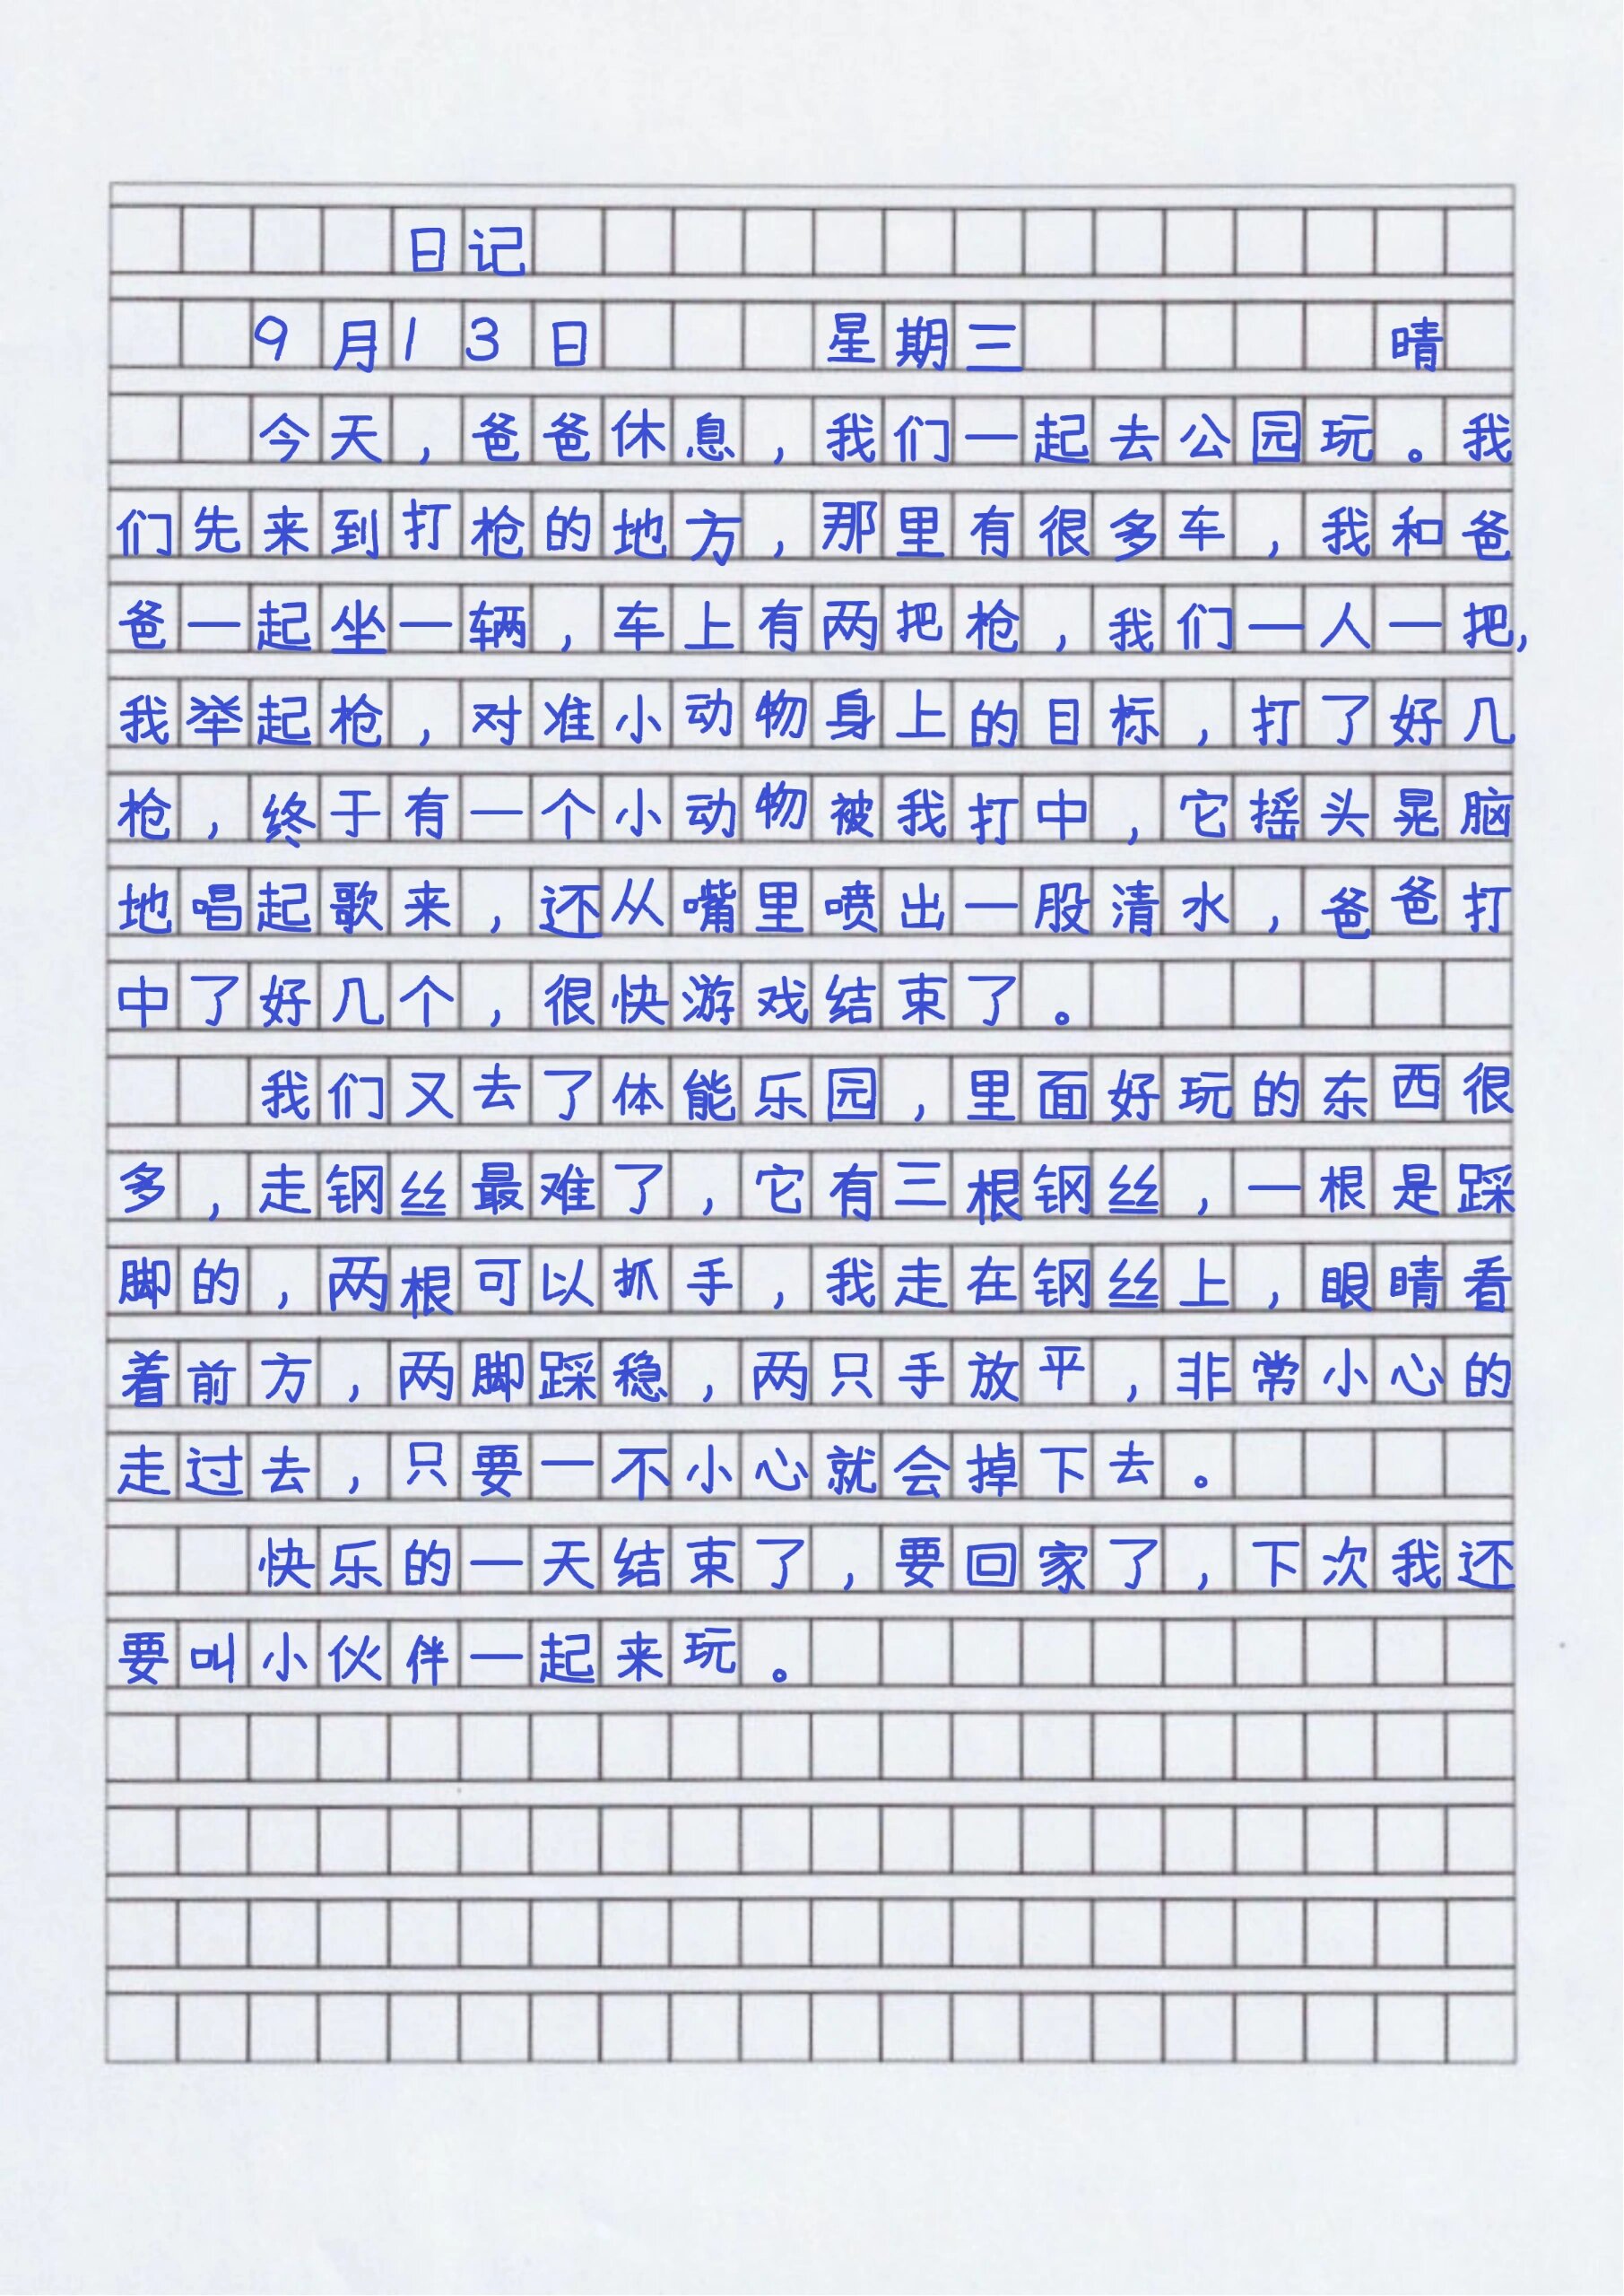 日记
9月13日 星期三 晴
今天，爸爸休息，我们一起去公园玩。我
们先来到打枪的地方，那里有很多车，我和爸
爸一起坐一辆，车上有两把枪，我们一人一把，
我举起枪，对准小动物身上的目标，打了好几
枪，终于有一个小动物被我打中，它摇头晃脑
地唱起歌来，还从嘴里喷出一股清水，爸爸打
中了好几个，很快游戏结束了。
我们又去了体能乐园，里面好玩的东西很
多，走钢丝最难了，它有三根钢丝，一根是踩
脚的，两根可以抓手，我走在钢丝上，眼睛看
着前方，两脚踩稳，两只手放平，非常小心的
走过去，只要一不小心就会掉下去。
快乐的一天结束了，要回家了，下次我还
要叫小伙伴一起来玩。